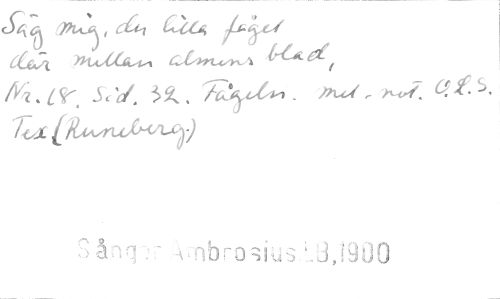 Säg mig, du lilla fågel
där mellan almens blad,
Nr. 18. Sid. 32. Fågeln. mel. not. O.L.S.
Tex. (Runeberg.)
Sånger Ambrosius.LB,1900